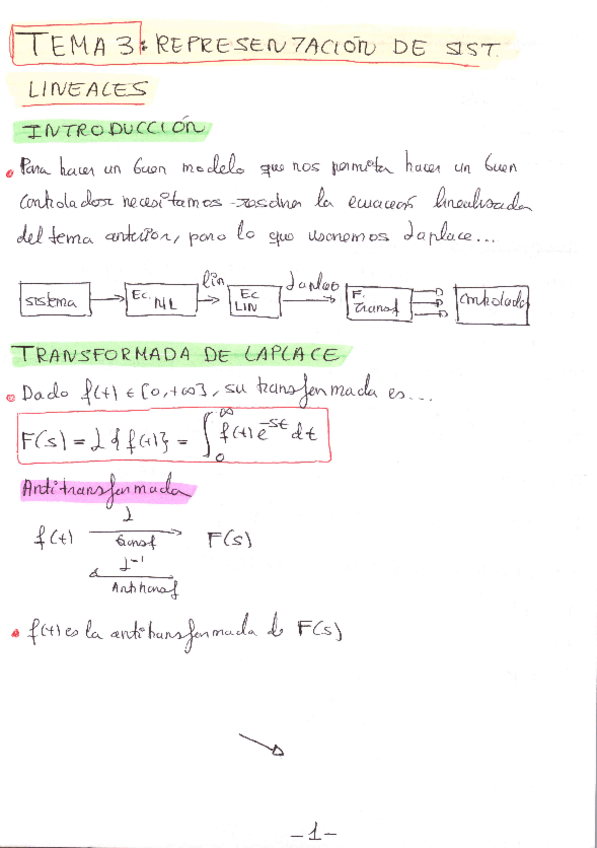 TEMA 3: REPRESENTACIÓN DE SIST.
LINEALES
INTRODUCCIÓN
• Para hacer un buen modelo que nos permita hacer un buen
controlador necesitamos resolver la ecuación linealizada
del tema anterior, para lo que usaremos Laplace...
sistema → Ec. NL → lin → Ec LIN → Laplace → F. Transf → Controlador
TRANSFORMADA DE LAPLACE
• Dado f(t) ∈ [0,+∞}, su transformada es...
F(s) = ℒ{f(t)} = ∫₀^∞ f(t) e^-st dt
Antitransformada
ℒ
f(t) → F(s)
transf
ℒ⁻¹
←
Antitransf
• f(t) es la antitransformada de F(s)
-1-